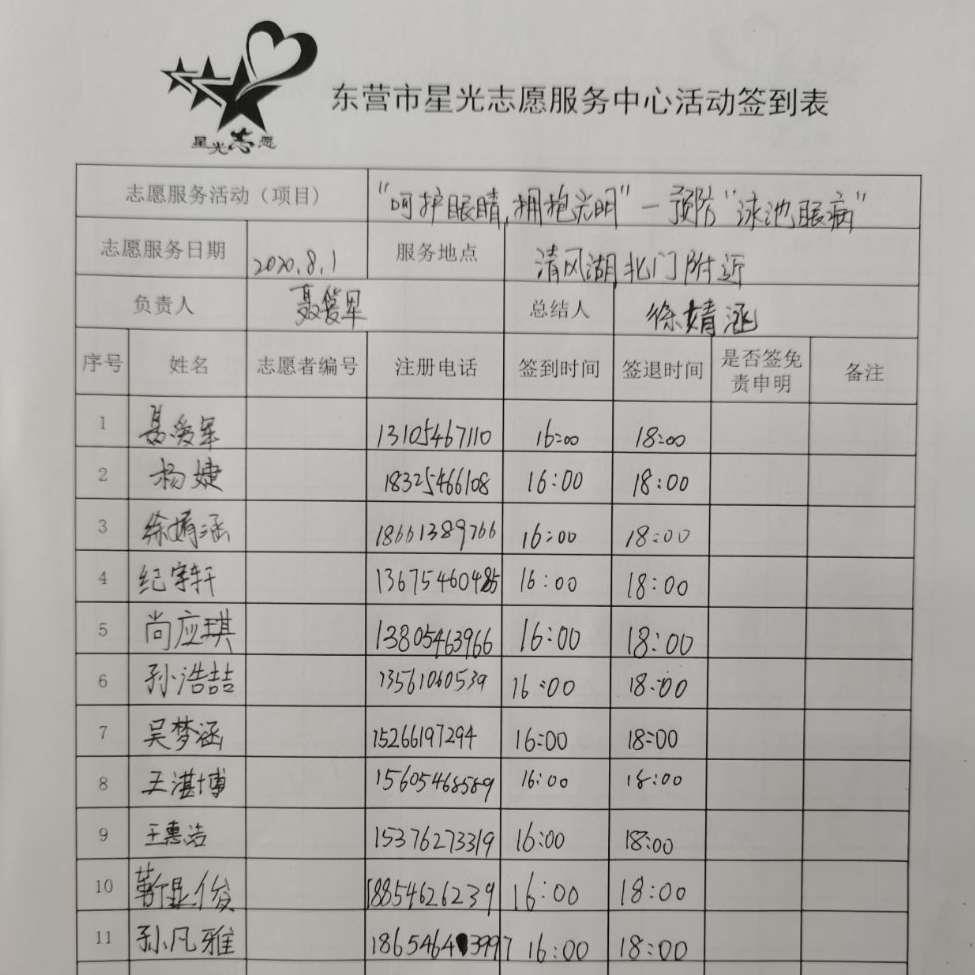 星光志愿
东营市星光志愿服务中心活动签到表
志愿服务活动（项目） “呵护眼睛,拥抱光明”—预防“泳池眼病”
志愿服务日期 2020.8.1 服务地点 清风湖北门附近
负责人 聂爱军 总结人 徐婧涵
序号 姓名 志愿者编号 注册电话 签到时间 签退时间 是否签免责申明 备注
1 聂爱军 13105467110 16:00 18:00
2 杨婕 18325466108 16:00 18:00
3 徐婧涵 18661389766 16:00 18:00
4 纪宇轩 13675460485 16:00 18:00
5 尚应琪 13805463966 16:00 18:00
6 孙浩喆 13561060539 16:00 18:00
7 吴梦涵 15266197294 16:00 18:00
8 王湛博 15605468589 16:00 18:00
9 王惠浩 15376273319 16:00 18:00
10 靳显俊 18854626239 16:00 18:00
11 孙凡雅 18654643997 16:00 18:00